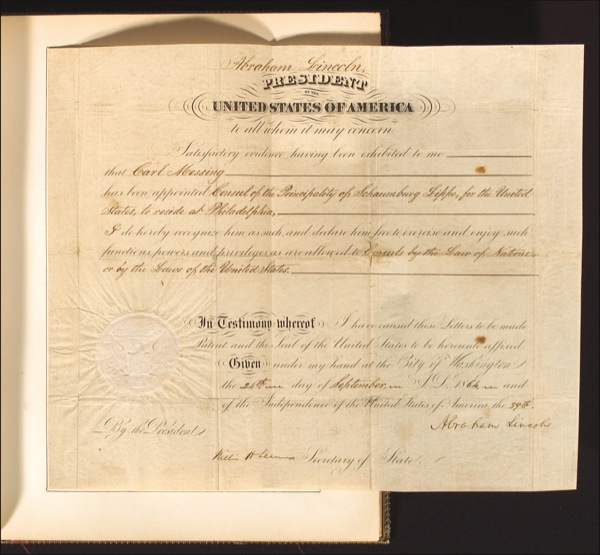 Abraham Lincoln,
PRESIDENT
OF THE
UNITED STATES OF AMERICA
to all whom it may concern
Satisfactory evidence having been exhibited to me
that Carl Messing
has been appointed Consul of the Principality of Schaumburg Lippe, for the United
States, to reside at Philadelphia,
I do hereby recognize him as such, and declare him free to exercise and enjoy such
functions, powers and privileges, as are allowed to Consuls by the Law of Nations
or by the Laws of the United States.
In Testimony whereof I have caused these Letters to be made
Patent and the Seal of the United States to be hereunto affixed
Given under my hand at the City of Washington
the 26th day of September, A.D. 1864, and
of the Independence of the United States of America, the 89th.
Abraham Lincoln
By the President
Secretary of State